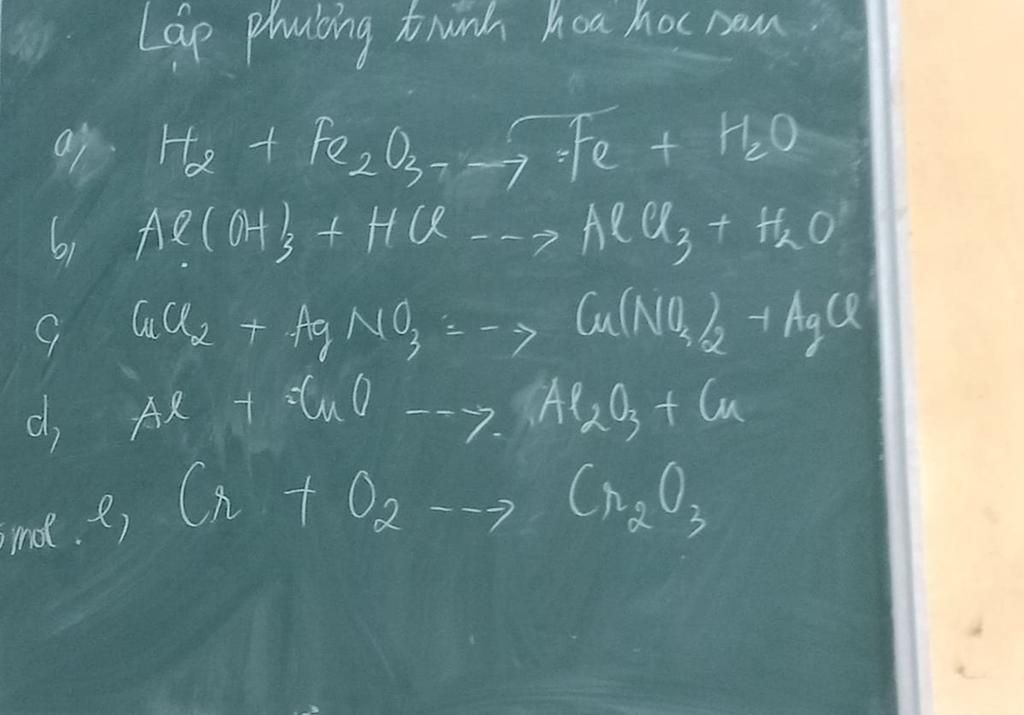 Lập phương trình hoá học sau.
a, H₂ + Fe₂O₃ --> Fe + H₂O
b, Al(OH)₃ + HCl ---> AlCl₃ + H₂O
c, CuCl₂ + AgNO₃ ---> Cu(NO₃)₂ + AgCl
d, Al + CuO ---> Al₂O₃ + Cu
mol. e, Cr + O₂ ---> Cr₂O₃